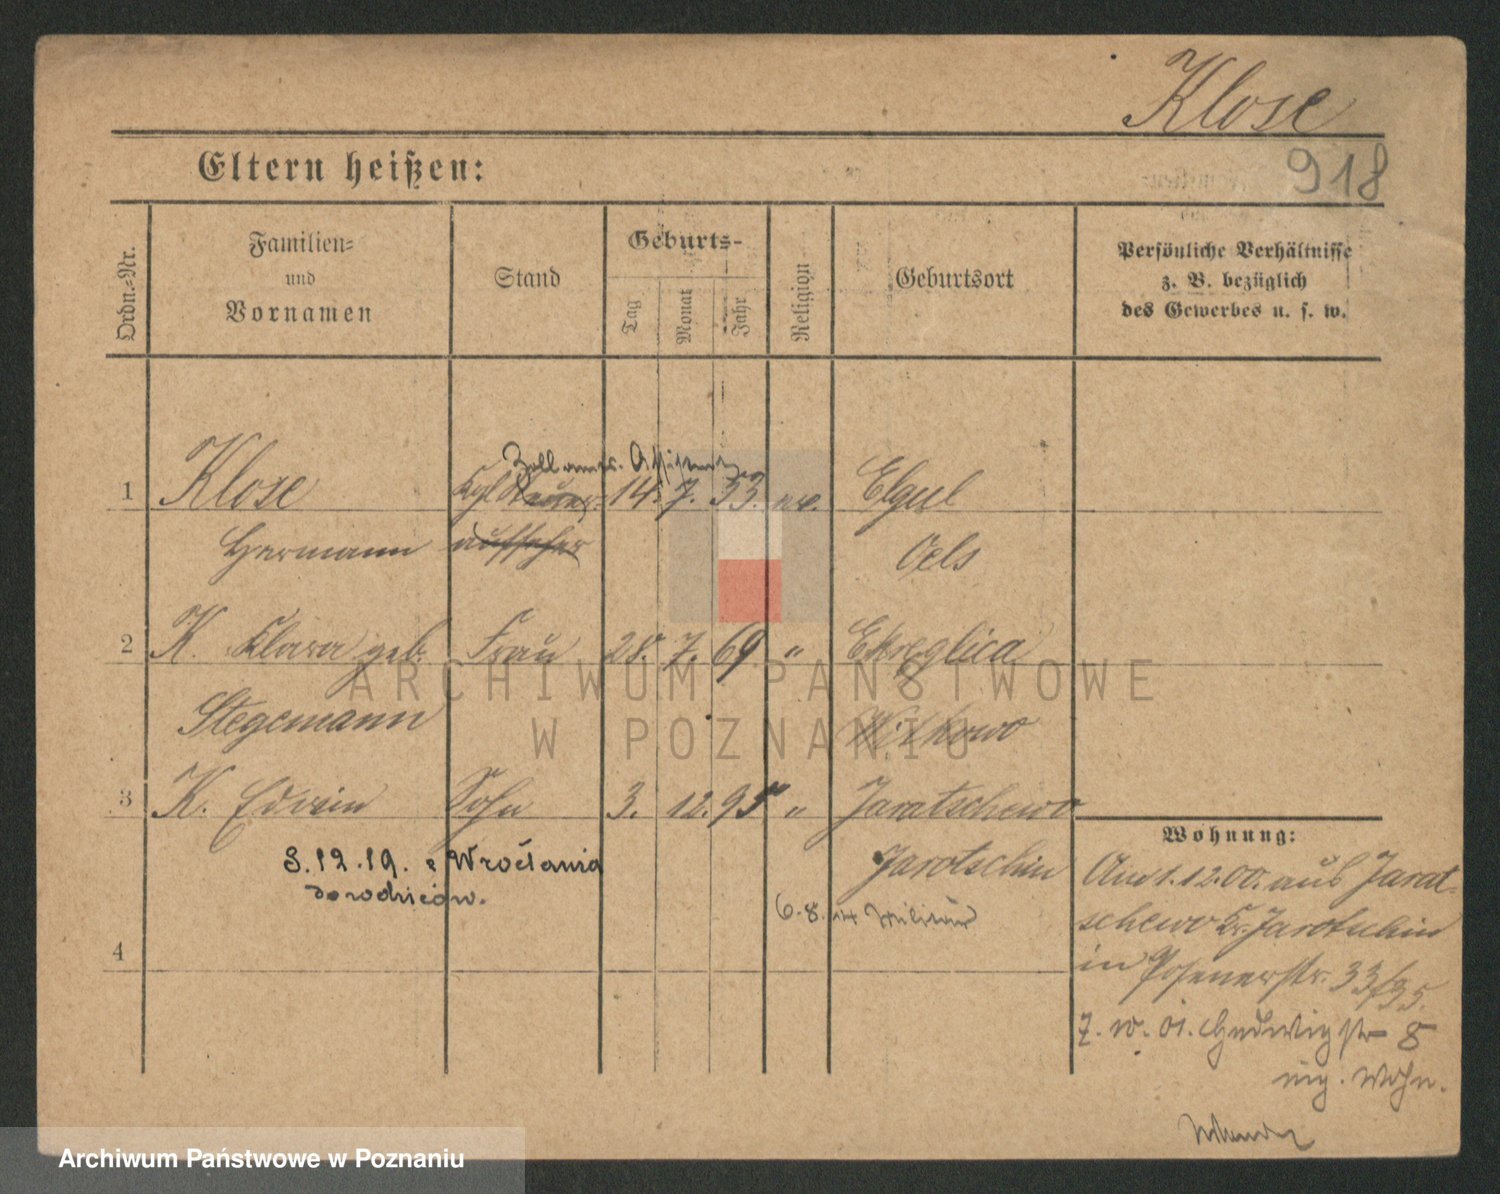 Klose
Eltern heißen:
918
Ordn.-Nr.
Familien-
und
Vornamen
Stand
Geburts-
Tag
Monat
Jahr
Religion
Geburtsort
Persönliche Verhältnisse
z. B. bezüglich
des Gewerbes u. s. w.
Zollamts. Assistent
1 Klose Kgl Steuer- 14. 7. 53. ev. Elgul
Hermann aufseher Oels
2 K. Klara geb. Frau 28. 7. 69 " 
Stegemann Witkowo
3 K. Edwin Sohn 3. 12. 95 " Jaratschewo
Jarotschin
3.12.19. z Wrocławia
do rodziców.
6.8.14 Militär
4
Wohnung:
Am 1.12.00. aus Jarat-
schewo Kr. Jarotschin
in Posenerstr. 33/35.
7. 10. 01. Hedwigstr 8
eig. Wohn.
ARCHIWUM PAŃSTWOWE
W POZNANIU
Archiwum Państwowe w Poznaniu